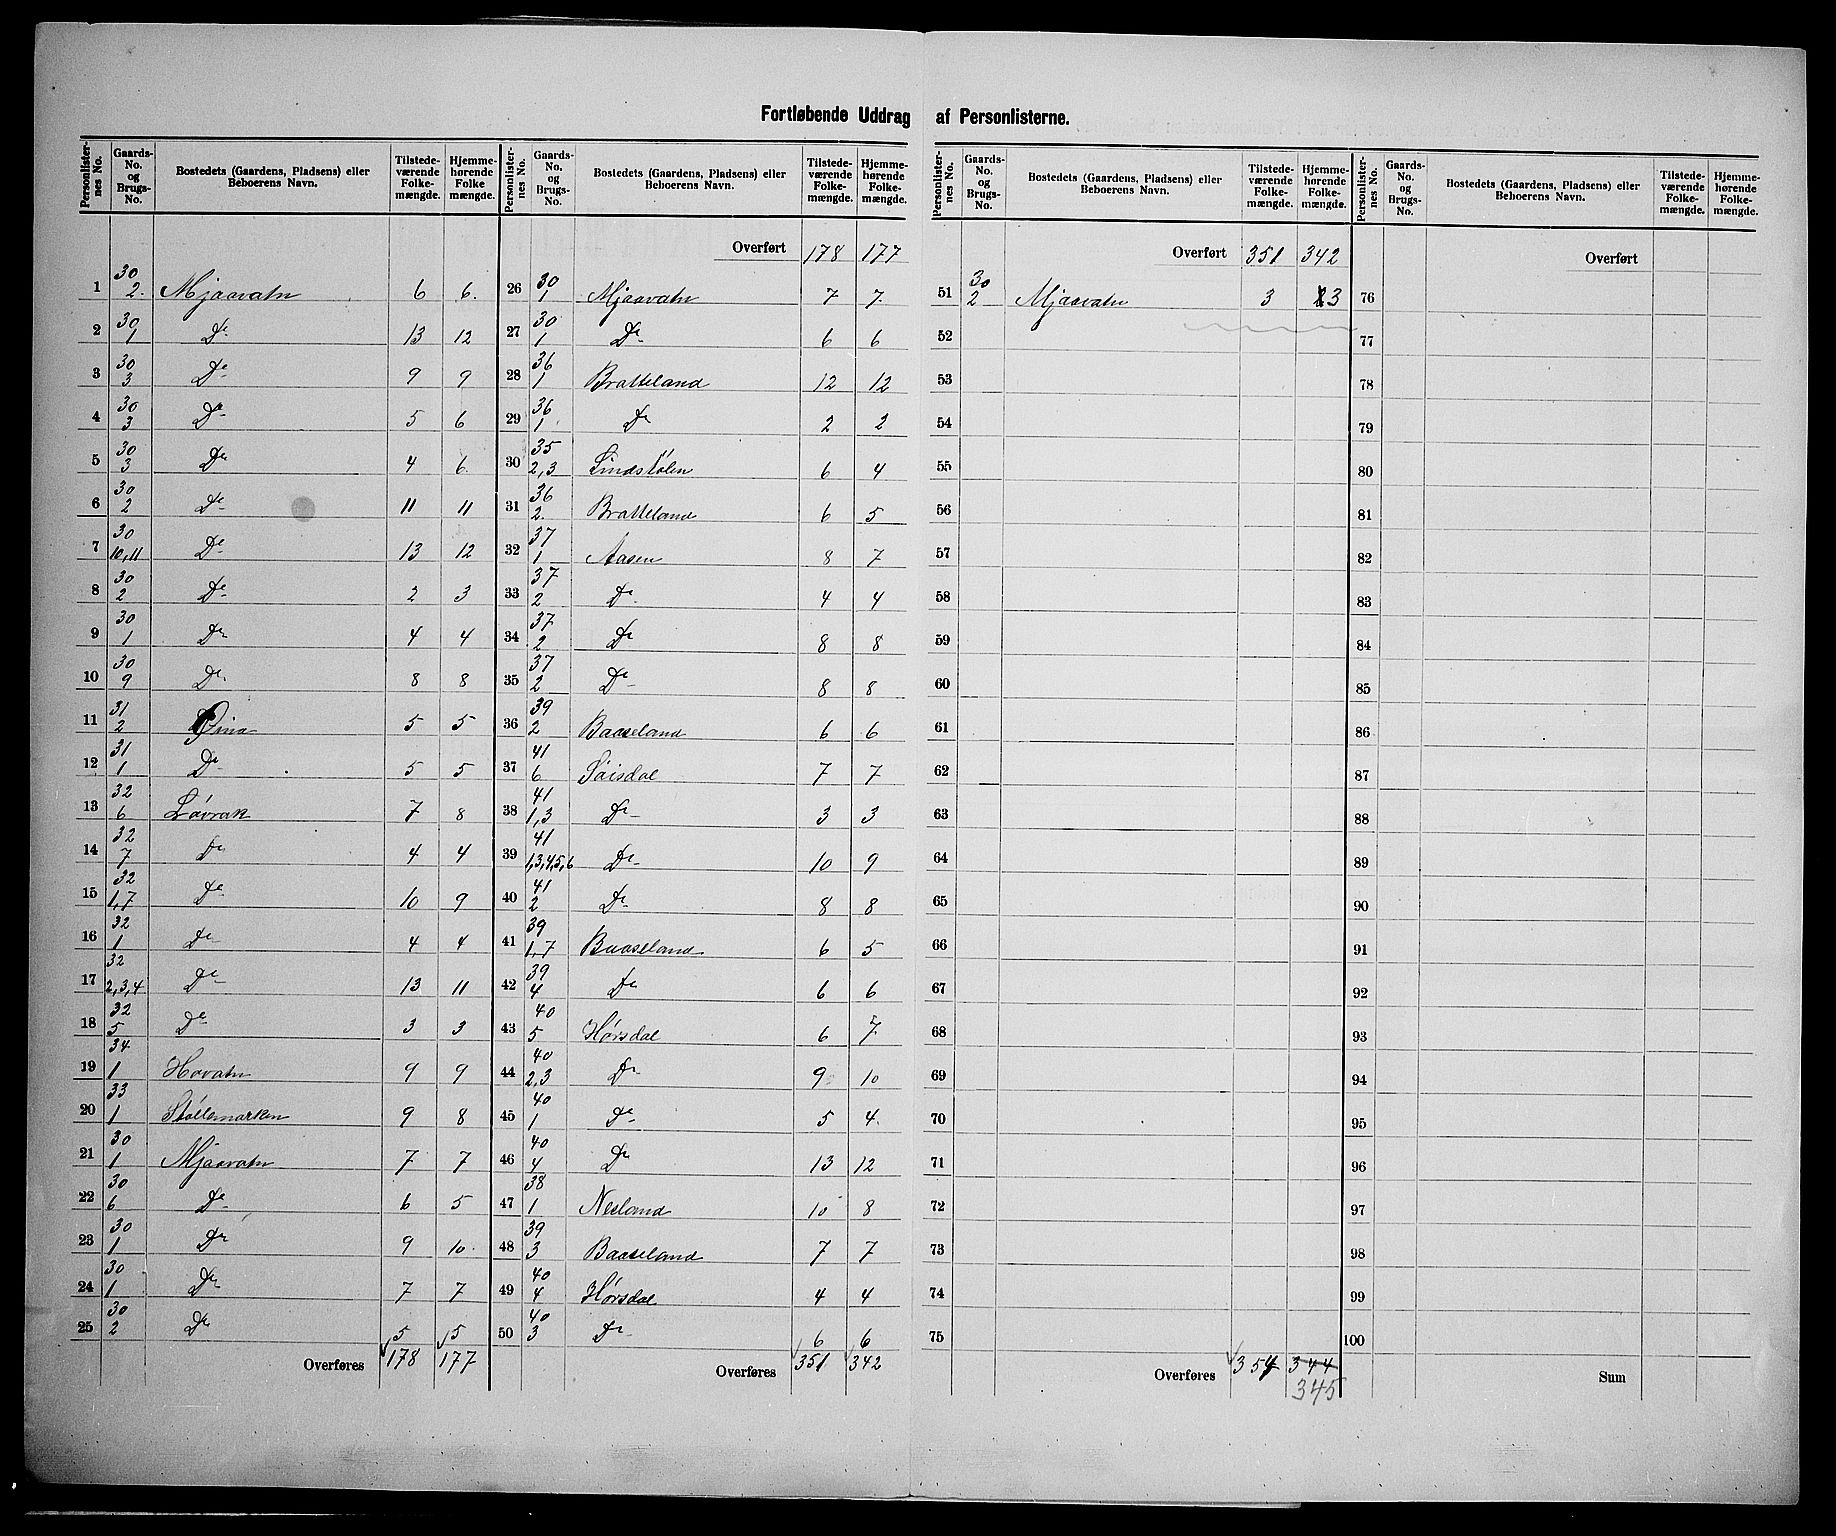 Fortløbende Uddrag af Personlisterne.
Personlister- nes No. | Gaards- No. og Brugs- No. | Bostedets (Gaardens, Pladsens) eller Beboerens Navn. | Tilstede- værende Folke- mængde. | Hjemme- hørende Folke mængde.
1 30/2. Mjaavatn 6 6.
2 30/1 Do 13 12
3 30/3 Do 9 9
4 30/3 Do 5 6
5 30/3 Do 4 6
6 30/2 Do 11 11
7 30/10,11 Do 13 12
8 30/2 Do 2 3
9 30/1 Do 4 4
10 30/9 Do 8 8
11 31/2 5 5
12 31/1 Do 5 5
13 32/6 Løvrak 7 8
14 32/7 Do 4 4
15 32/1,7 Do 10 9
16 32/1 Do 4 4
17 32/2,3,4 Do 13 11
18 32/5 Do 3 3
19 34/1 Hovatn 9 9
20 33/1 Støllemarken 9 8
21 30/1 Mjaavatn 7 7
22 30/6 Do 6 5
23 30/1 Do 9 10
24 30/1 Do 7 7
25 30/2 Do 5 5
Overføres 178 177
Personlister- nes No. | Gaards- No. og Brugs- No. | Bostedets (Gaardens, Pladsens) eller Beboerens Navn. | Tilstede- værende Folke- mængde. | Hjemme- hørende Folke- mængde.
Overført 178 177
26 30/1 Mjaavatn 7 7
27 30/1 Do 6 6
28 36/1 Bratteland 12 12
29 36/1 Do 2 2
30 35/2,3 Lindstølen 6 4
31 36/2. Bratteland 6 5
32 37/1 Aasen 8 7
33 37/2 Do 4 4
34 37/2 Do 8 8
35 37/2 Do 8 8
36 39/2 Baaseland 6 6
37 41/6 Søisdal 7 7
38 41/1,3 Do 3 3
39 41/1,3,4,5,6 Do 10 9
40 41/2 Do 8 8
41 39/1,7 Baaseland 6 5
42 39/4 Do 6 6
43 40/5 Hørsdal 6 7
44 40/2,3 Do 9 10
45 40/1 Do 5 4
46 40/4 Do 13 12
47 38/1 Nesland 10 8
48 39/3 Baaseland 7 7
49 40/4 Hørsdal 4 4
50 40/3 Do 6 6
Overføres 351 342
Personlister- nes No. | Gaards- No. og Brugs- No. | Bostedets (Gaardens, Pladsens) eller Beboerens Navn. | Tilstede- værende Folke- mængde. | Hjemme- hørende Folke- mængde.
Overført 351 342
51 30/2 Mjaavatn 3 3
52
53
54
55
56
57
58
59
60
61
62
63
64
65
66
67
68
69
70
71
72
73
74
75
Overføres 354 344
345
Personlister- nes No. | Gaards- No. og Brugs- No. | Bostedets (Gaardens, Pladsens) eller Beboerens Navn. | Tilstede- værende Folke- mængde. | Hjemme- hørende Folke- mængde.
Overført
76
77
78
79
80
81
82
83
84
85
86
87
88
89
90
91
92
93
94
95
96
97
98
99
100
Sum